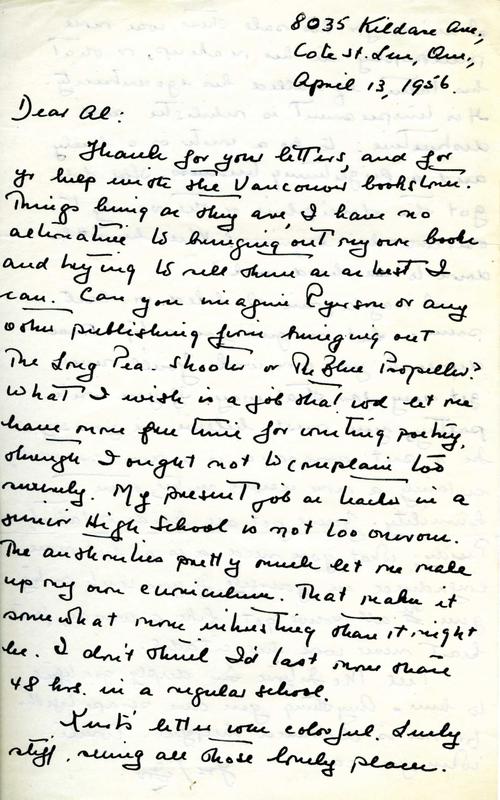 8035 Kildare Ave.,
Cote St. Luc, Que.,
April 13, 1956.
Dear Al:
Thanks for your letters, and for
yr help with the Vancouver bookstores.
Things being as they are, I have no
alternative to bringing out my own books
and trying to sell them as as best I
can. Can you imagine Ryerson or any
other publishing firm bringing out
The Long Pea-Shooter or The Blue Propeller?
What I wish is a job that wd let me
have more free time for writing poetry,
though I ought not to complain too
My present job as teacher in a
Junior High School is not too onerous.
The authorities pretty much let me make
up my own curriculum. That makes it
somewhat more interesting than it might
be. I don't think I'd last more than
48 hrs. in a regular school.
letter was colorful. Lucky
stiff, seeing all those lovely places.